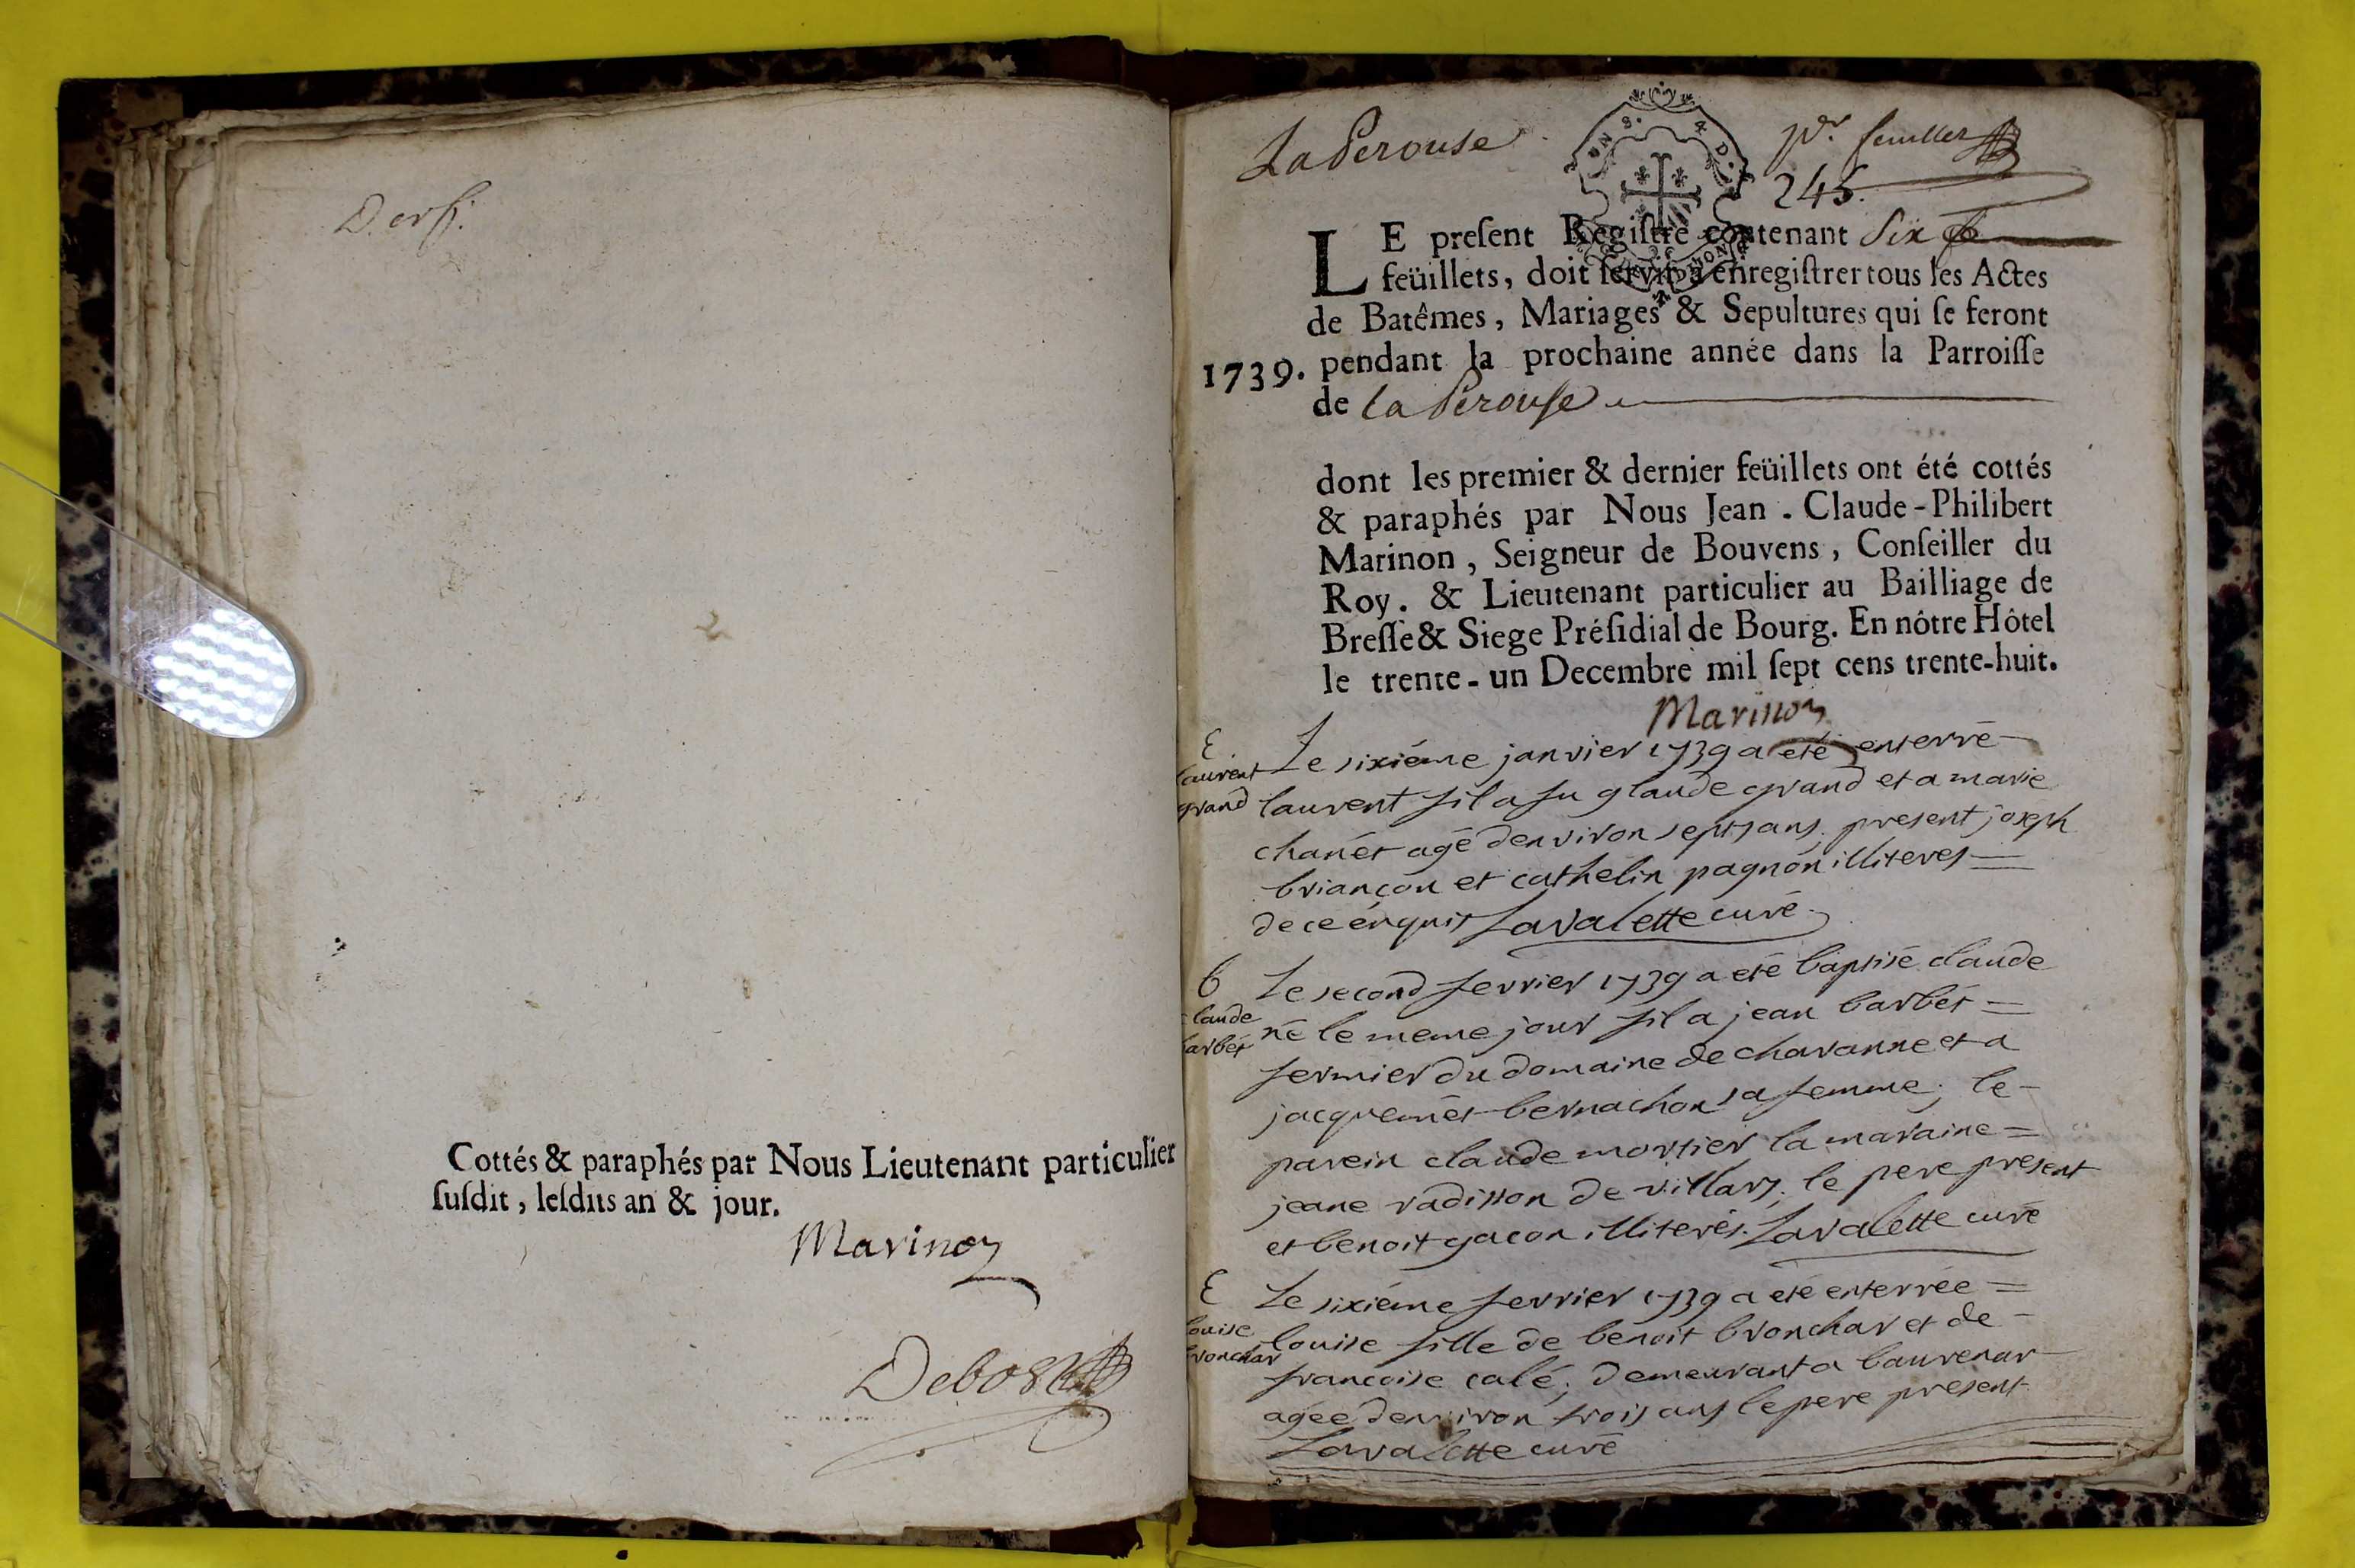 Cottés & paraphés par Nous Lieutenant particulier
ſuſdit, leſdits an & jour.
Marinon
Debost
La Perouse
pr. feuillet
245.
LE preſent Regiſtre contenant Six
feüillets, doit ſervir à enregiſtrer tous les Actes
de Batêmes, Mariages & Sepultures qui ſe feront
1739. pendant la prochaine année dans la Parroiſſe
de la Perouſe
dont les premier & dernier feüillets ont été cottés
& paraphés par Nous Jean . Claude-Philibert
Marinon, Seigneur de Bouvens, Conſeiller du
Roy. & Lieutenant particulier au Bailliage de
Breſſe & Siege Préſidial de Bourg. En nôtre Hôtel
le trente-un Decembre mil ſept cens trente-huit.
Marinon
E
laurent
grand
Le sixiéme janvier 1739 a eté enterré
laurent fil a fu glaude grand et a marie
chanét agé denviron sept ans. present joseph
briançon et cathelin pagnon illiteres
de ce enquis Lavalette curé.
b
claude
barbét
Le second fevrier 1739 a eté baptisé claude
né le meme jour fil a jean barbét
fermier du domaine de chavanne et a
jacquemét bernachon sa femme; le
parein claude mortier la maraine
jeane radisson de villars; le pere present
et benoit gacon illiterés. Lavalette curé
E
louise
bronchar
Le sixiéme fevrier 1739 a eté enterrée
louise fille de benoit bronchar et de
francoise calé; demeurant a bauvenar
agée denviron trois ans le pere present
Lavalette curé